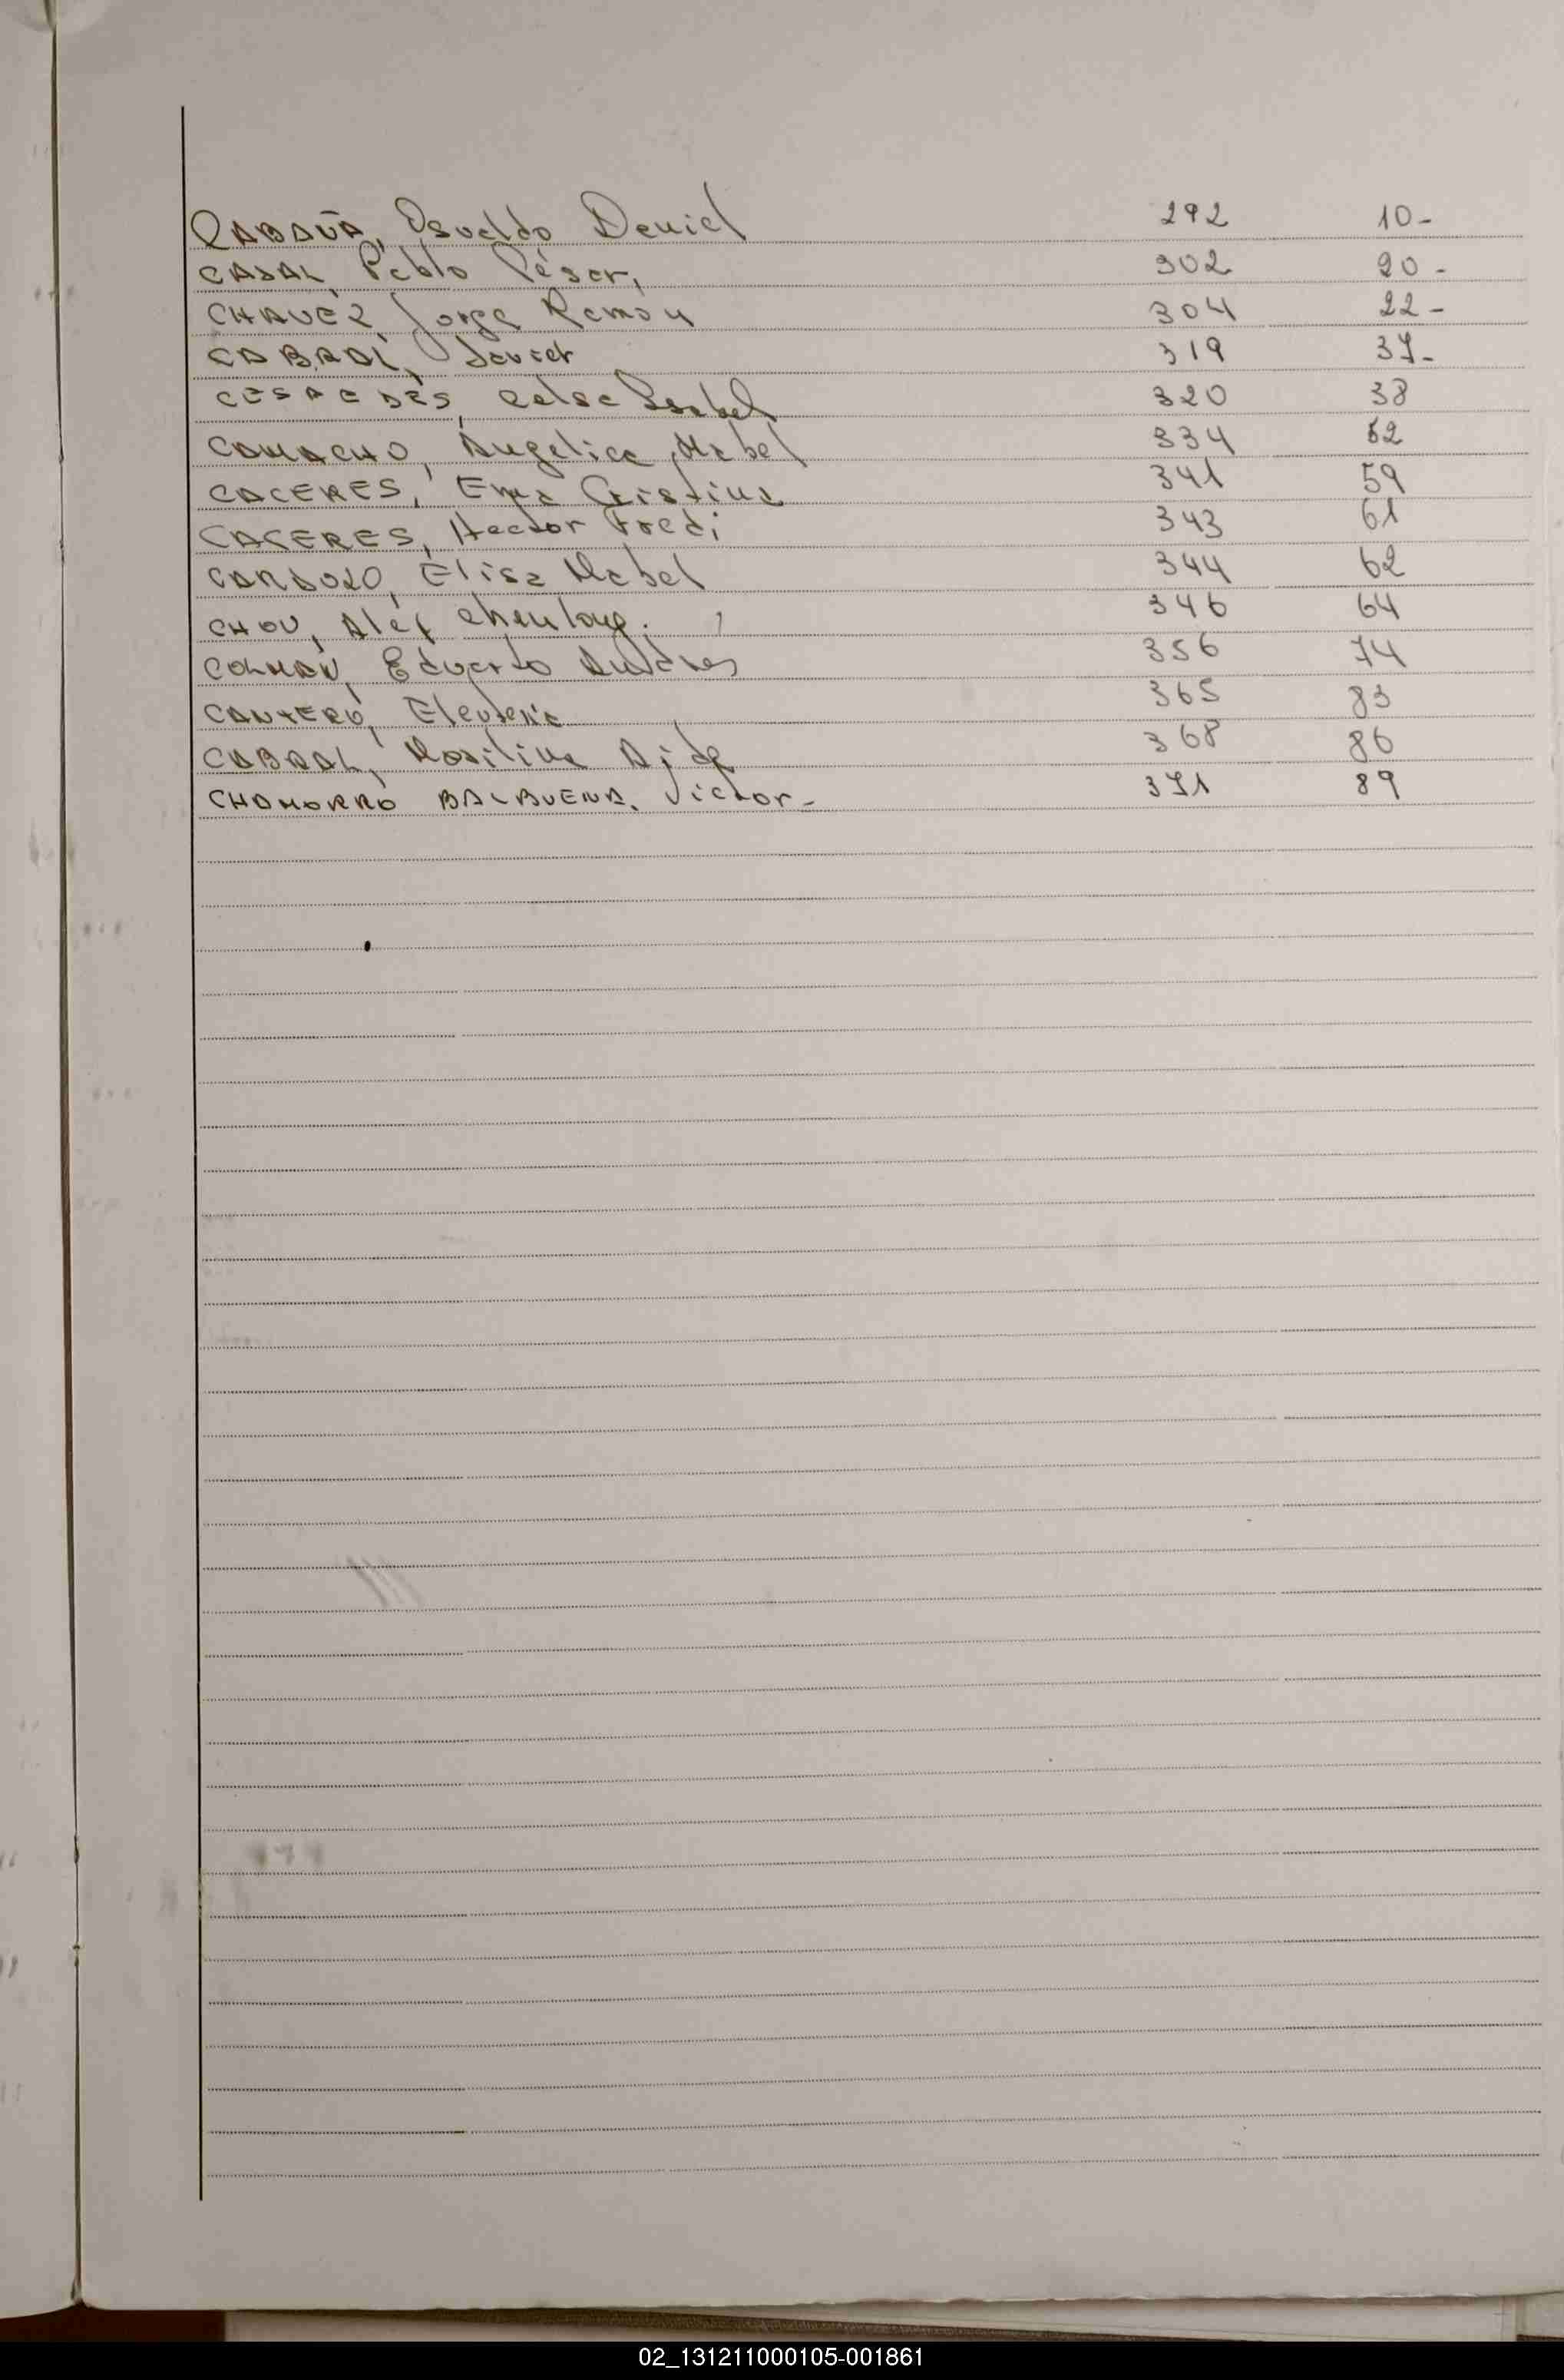 CABAÑA, Osvaldo Daniel 292 10-
CASAL, Pablo César, 302 20-
CHAVEZ, Jorge Ramón 304 22-
CABRAL, Javier 319 37-
CESPEDES, Celsa Isabel 320 38
CAMACHO, Angelica Mabel 334 52
CACERES, Ema Cristina 341 59
CACERES, Hector Fredi 343 61
CARDOZO, Elisa Mabel 344 62
CHOU, Alex Chenlong. 346 64
COLMAN, Eduardo Andres 356 74
CANTERO, Eleuteria 365 83
CABRAL, Rosilina 368 86
CHAMORRO BALBUENA, Victor- 371 89
02_131211000105-001861